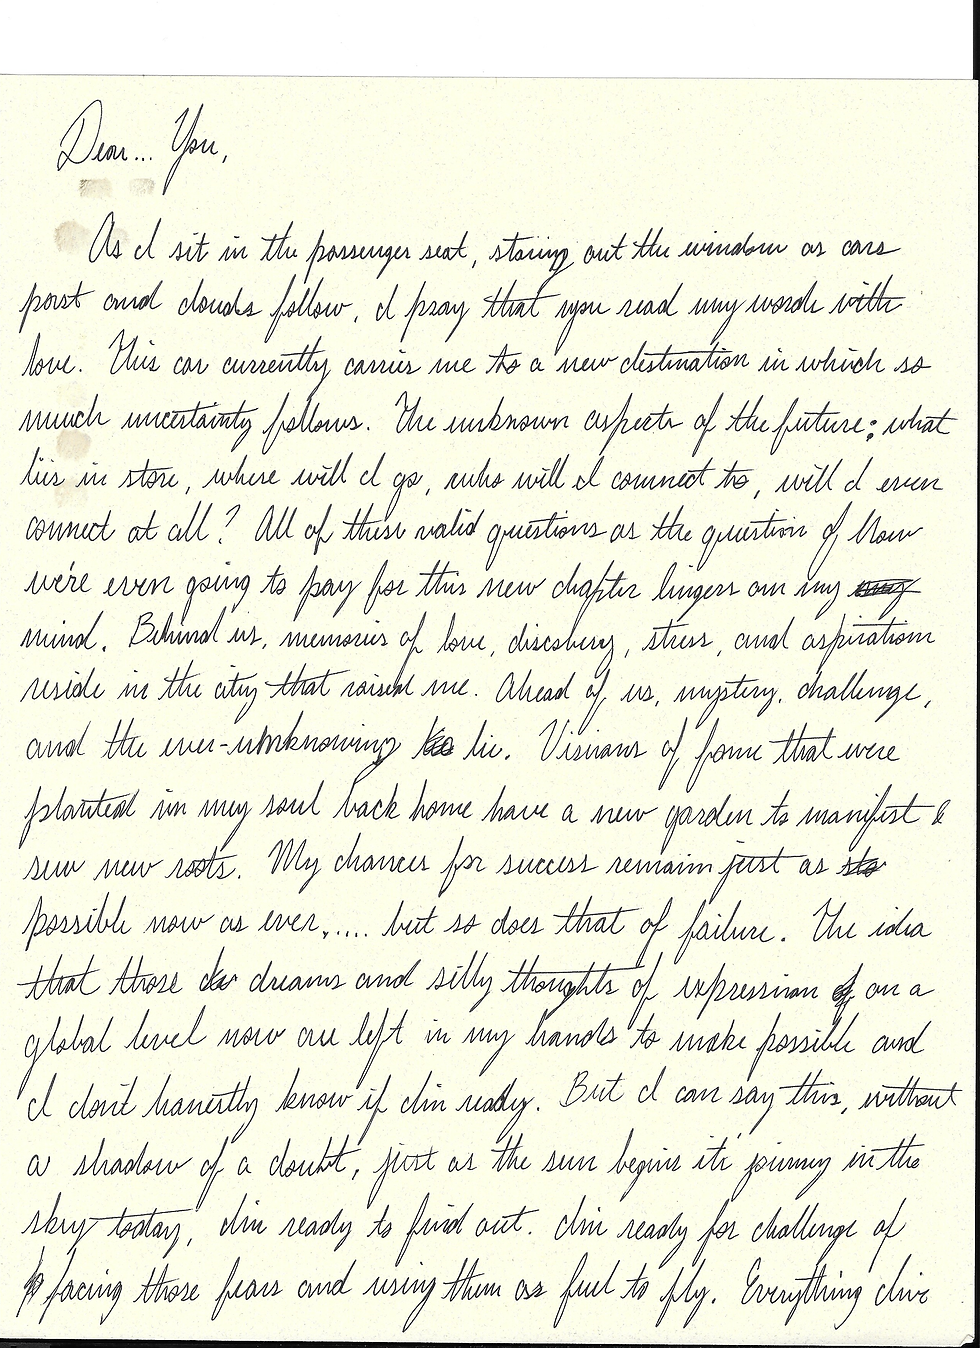 Dear... You,
As I sit in the passenger seat, staring out the window as cars
past and clouds follow, I pray that you read my words with
love. This car currently carries me to a new destination in which so
much uncertainty follows. The unknown aspects of the future; what
lies in store, where will I go, who will I connect to, will I even
connect at all? All of these valid questions as the question of how
we're even going to pay for this new chapter lingers on my
mind. Behind us, memories of love, discovery, stress, and aspiration
reside in the city that raised me. Ahead of us, mystery, challenge,
and the ever-unknowing lie. Visions of fame that were
planted in my soul back home have a new garden to manifest &
sew new roots. My chances for success remain just as
possible now as ever,.... but so does that of failure. The idea
that those dreams and silly thoughts of expression on a
global level now are left in my hands to make possible and
I don't honestly know if I'm ready. But I can say this, without
a shadow of a doubt, just as the sun begins it's journey in the
sky today, I'm ready to find out. I'm ready for challenge of
facing those fears and using them as fuel to fly. Everything I've